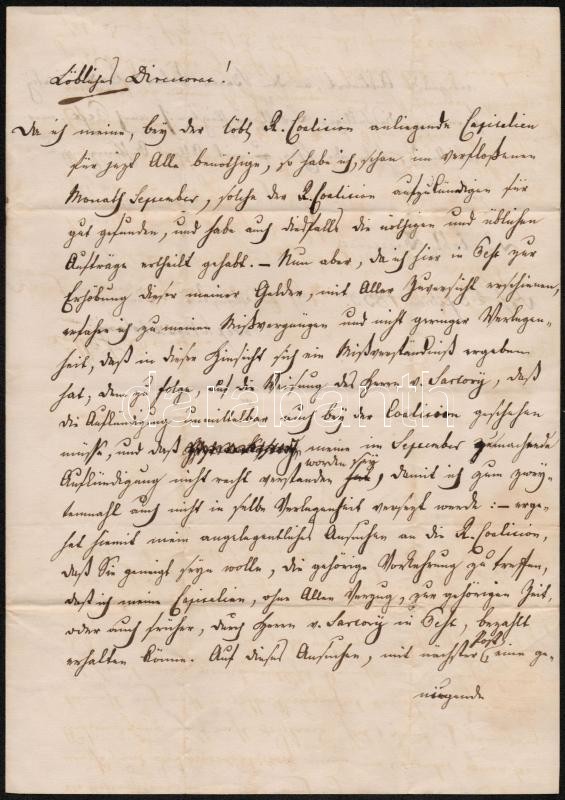 Löbliches Directorat!
Da ich meine, bey der löbl. R. Coalicion anliegende Capitalien
für jezt Alle benöthige, so habe ich, schon im verfloßenen
Monath September, solche der R. Coalicion aufzukündigen für
gut gefunden, und habe auch diesfalls die nöthigen und üblichen
Aufträge ertheilt gehabt. – Nun aber, da ich hier in Pest zur
Erhebung dieser meiner Gelder, mit Aller Zuversicht erschienen,
erfahre ich zu meinem Mißvergnügen und nicht geringer Verlegen-
heit, daß in dieser Hinsicht sich ein Mißverständniß ergeben
hat, dem zu folge, auf die Weisung des Herrn v. Sartory, daß
die Aufkündigung unmittelbar auch bey der Coalicion geschehen
müsse, und daß meine im September gemachende
Aufkündigung nicht recht verstanden worden sey, damit ich zum zwey-
tenmahl auch nicht in selbe Verlegenheit versezt werde: – erge-
het hiemit mein angelegentliches Ansuchen an die R. Coalicion,
daß Sie geneigt seyn wolle, die gehörige Vorkehrung zu treffen,
daß ich meine Capitalien, ohne Allen Verzug, zur gehörigen Zeit,
oder auch früher, durch Herrn v. Sartory in Pest, bezahlt
erhalten könne. Auf dieses Ansuchen, mit nächster Post eine ge-
nügende
darabanth